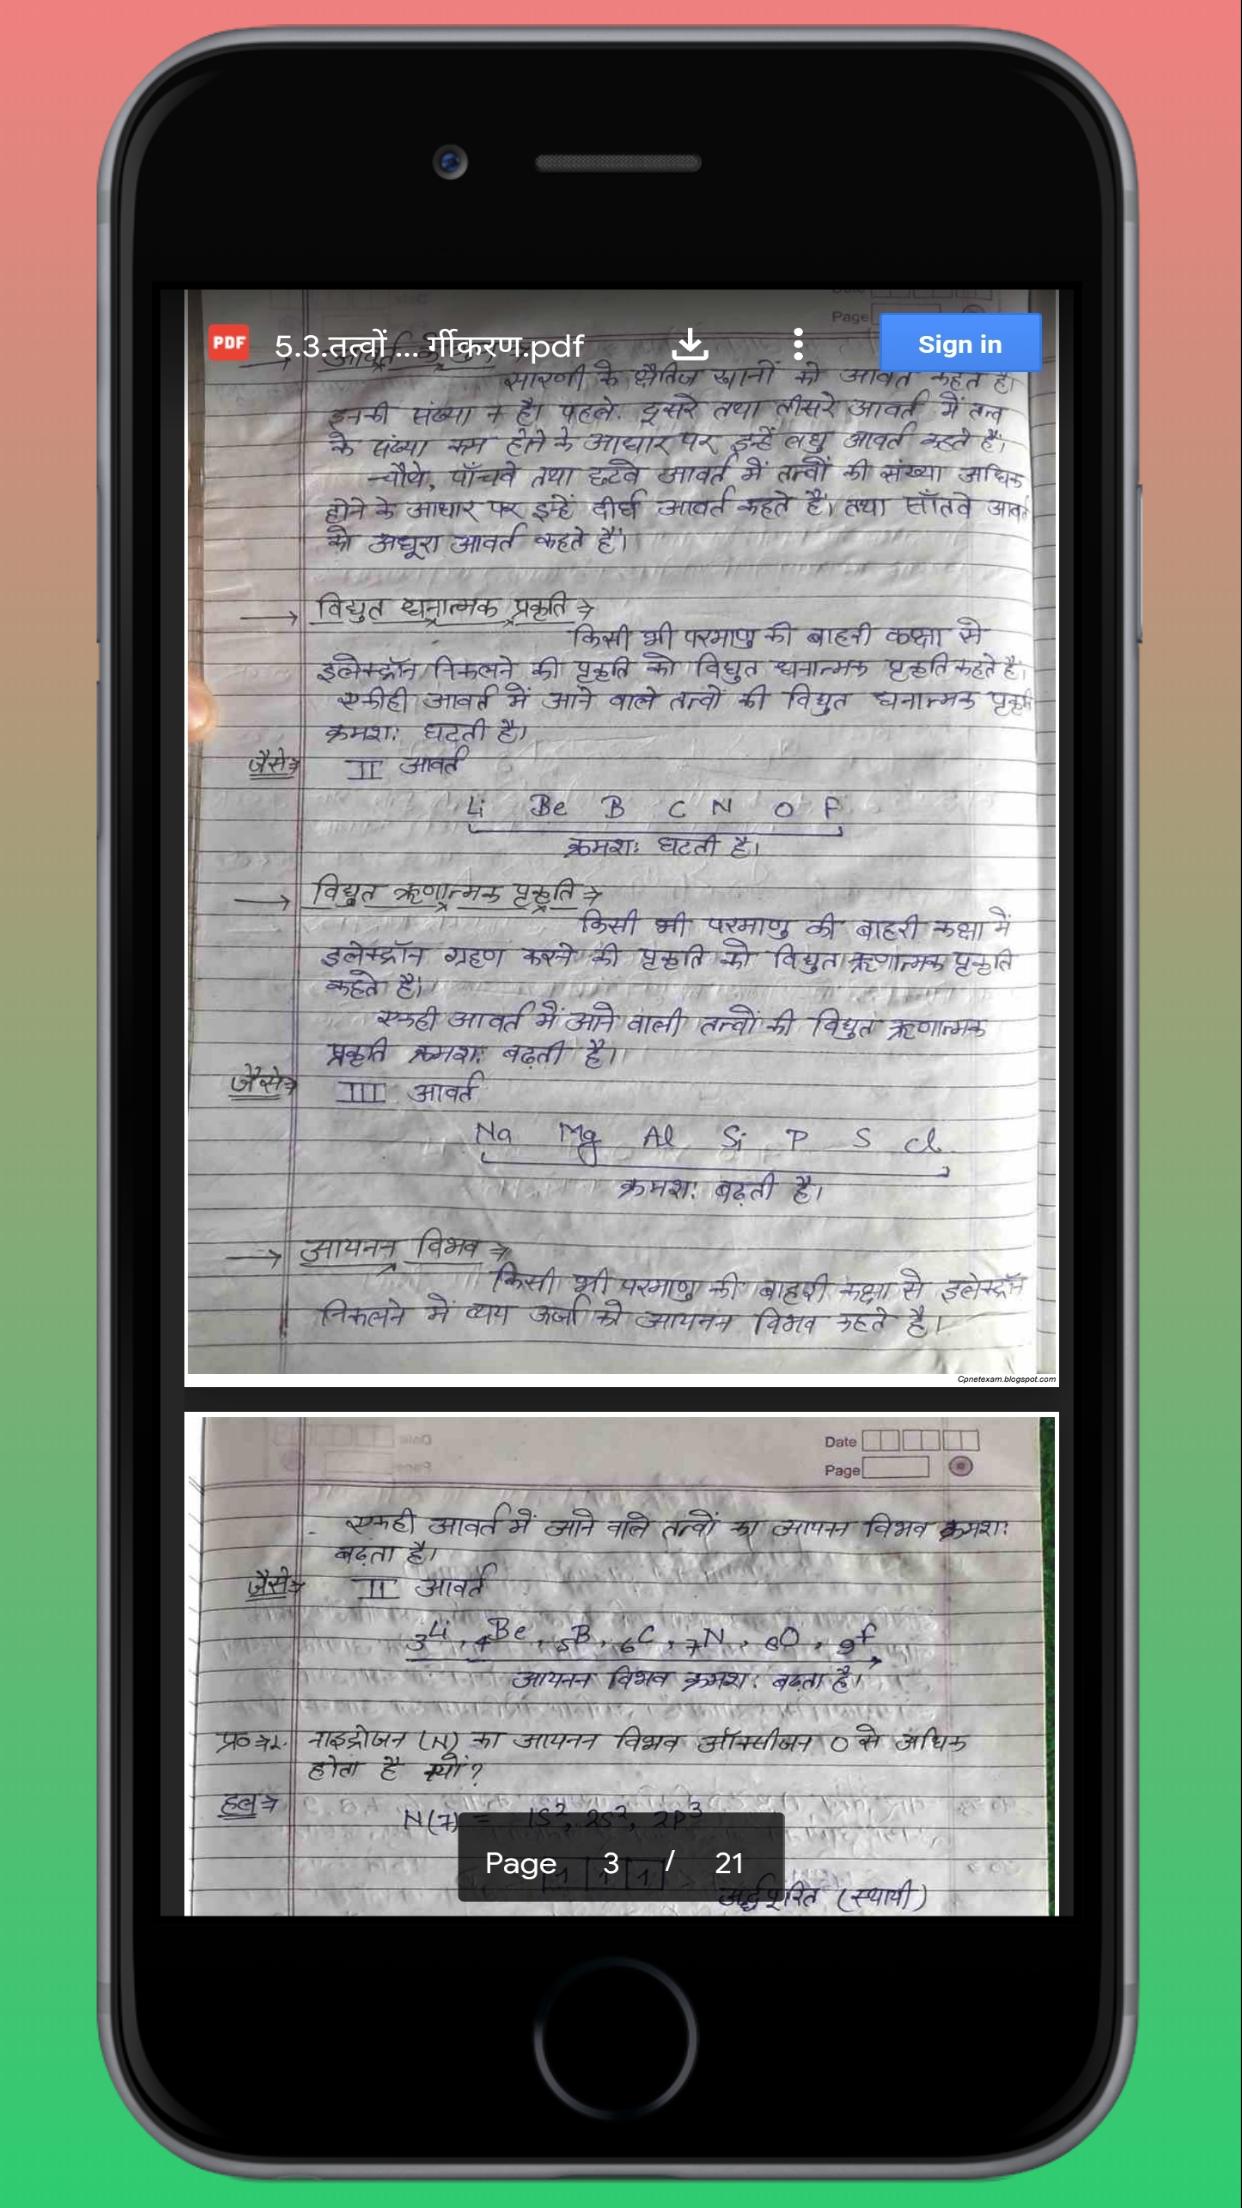 Page
PDF 5.3.तत्वों ... र्गीकरण.pdf Sign in
सारणी के क्षैतिज खानों को आवर्त कहते है।
इनकी संख्या 7 है। पहले. दूसरे तथा तीसरे आवर्त में तत्व
के संख्या कम होने के आधार पर इन्हें लघु आवर्त कहते है।
चौथे, पाँचवे तथा छटवे आवर्त में तत्वों की संख्या अधिक
होने के आधार पर इन्हें दीर्घ आवर्त कहते है। तथा साँतवे आवर्त
को अधूरा आवर्त कहते है।
→ विद्युत धनात्मक प्रकृति ⇒
किसी भी परमाणु की बाहरी कक्षा से
इलेक्ट्रॉन निकलने की प्रकृति को विद्युत धनात्मक प्रकृति कहते है।
एकीही आवर्त में आने वाले तत्वों की विद्युत धनात्मक प्रकृति
क्रमशः घटती है।
जैसे⇒ II आवर्त
Li Be B C N O F
क्रमशः घटती है।
→ विद्युत ऋणात्मक प्रकृति ⇒
किसी भी परमाणु की बाहरी कक्षा में
इलेक्ट्रॉन ग्रहण करने की प्रकृति को विद्युत ऋणात्मक प्रकृति
कहते है।
एकही आवर्त में आने वाली तत्वों की विद्युत ऋणात्मक
प्रकृति क्रमशः बढ़ती है।
जैसे⇒ III आवर्त
Na Mg Al Si P S Cl
क्रमशः बढ़ती है।
→ आयनन विभव ⇒
किसी भी परमाणु की बाहरी कक्षा से इलेक्ट्रॉन
निकलने में व्यय ऊर्जा को आयनन विभव कहते है।
Cpnetexam.blogspot.com
Date
Page
एकही आवर्त में आने वाले तत्वों का आयनन विभव क्रमशः
बढ़ता है।
जैसे⇒ II आवर्त
3Li, 4Be, 5B, 6C, 7N, 8O, 9F
आयनन विभव क्रमशः बढ़ता है।
प्र०⇒1. नाइट्रोजन (N) का आयनन विभव ऑक्सीजन O से अधिक
होता है क्यों?
हल⇒
N(7) = 1S², 2S², 2P³
Page 3 / 21
अर्द्धपूरित (स्थायी)